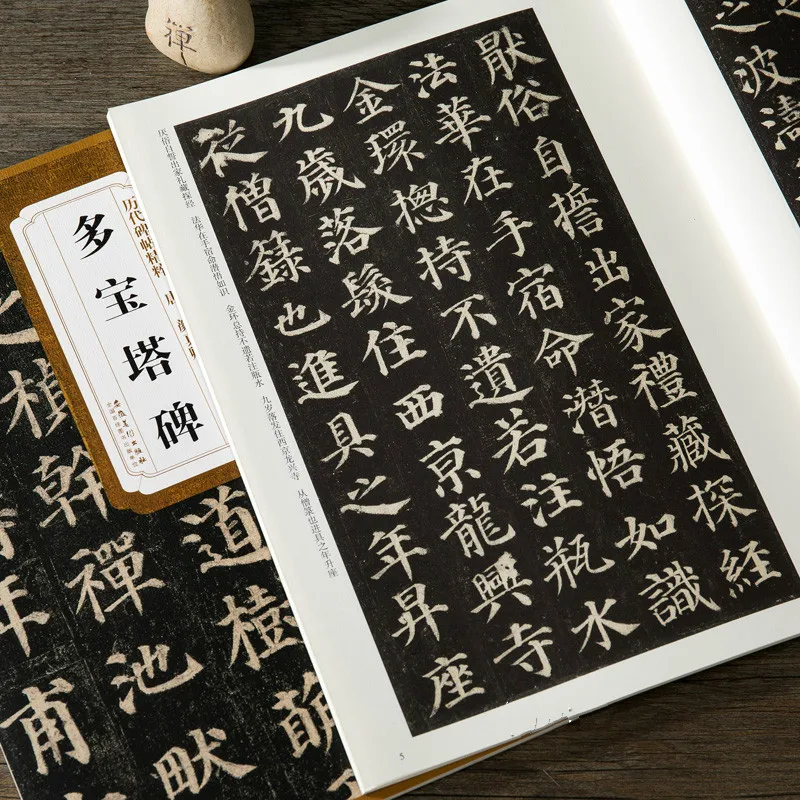 禪
厭俗自誓出家禮藏探經
法華在手宿命潛悟如識
金環揔持不遺若注瓶水
九歲落髮住西京龍興寺
從僧籙也進具之年昇座
厌俗自誓出家礼藏探经 法华在手宿命潜悟如识 金环总持不遗若注瓶水 九岁落发住西京龙兴寺 从僧箓也进具之年升座
5
之波濤
历代碑帖精粹
多宝塔碑
安徽美术出版社
全国百佳图书出版单位
道樹萌
楨幹禪池畎
年甫